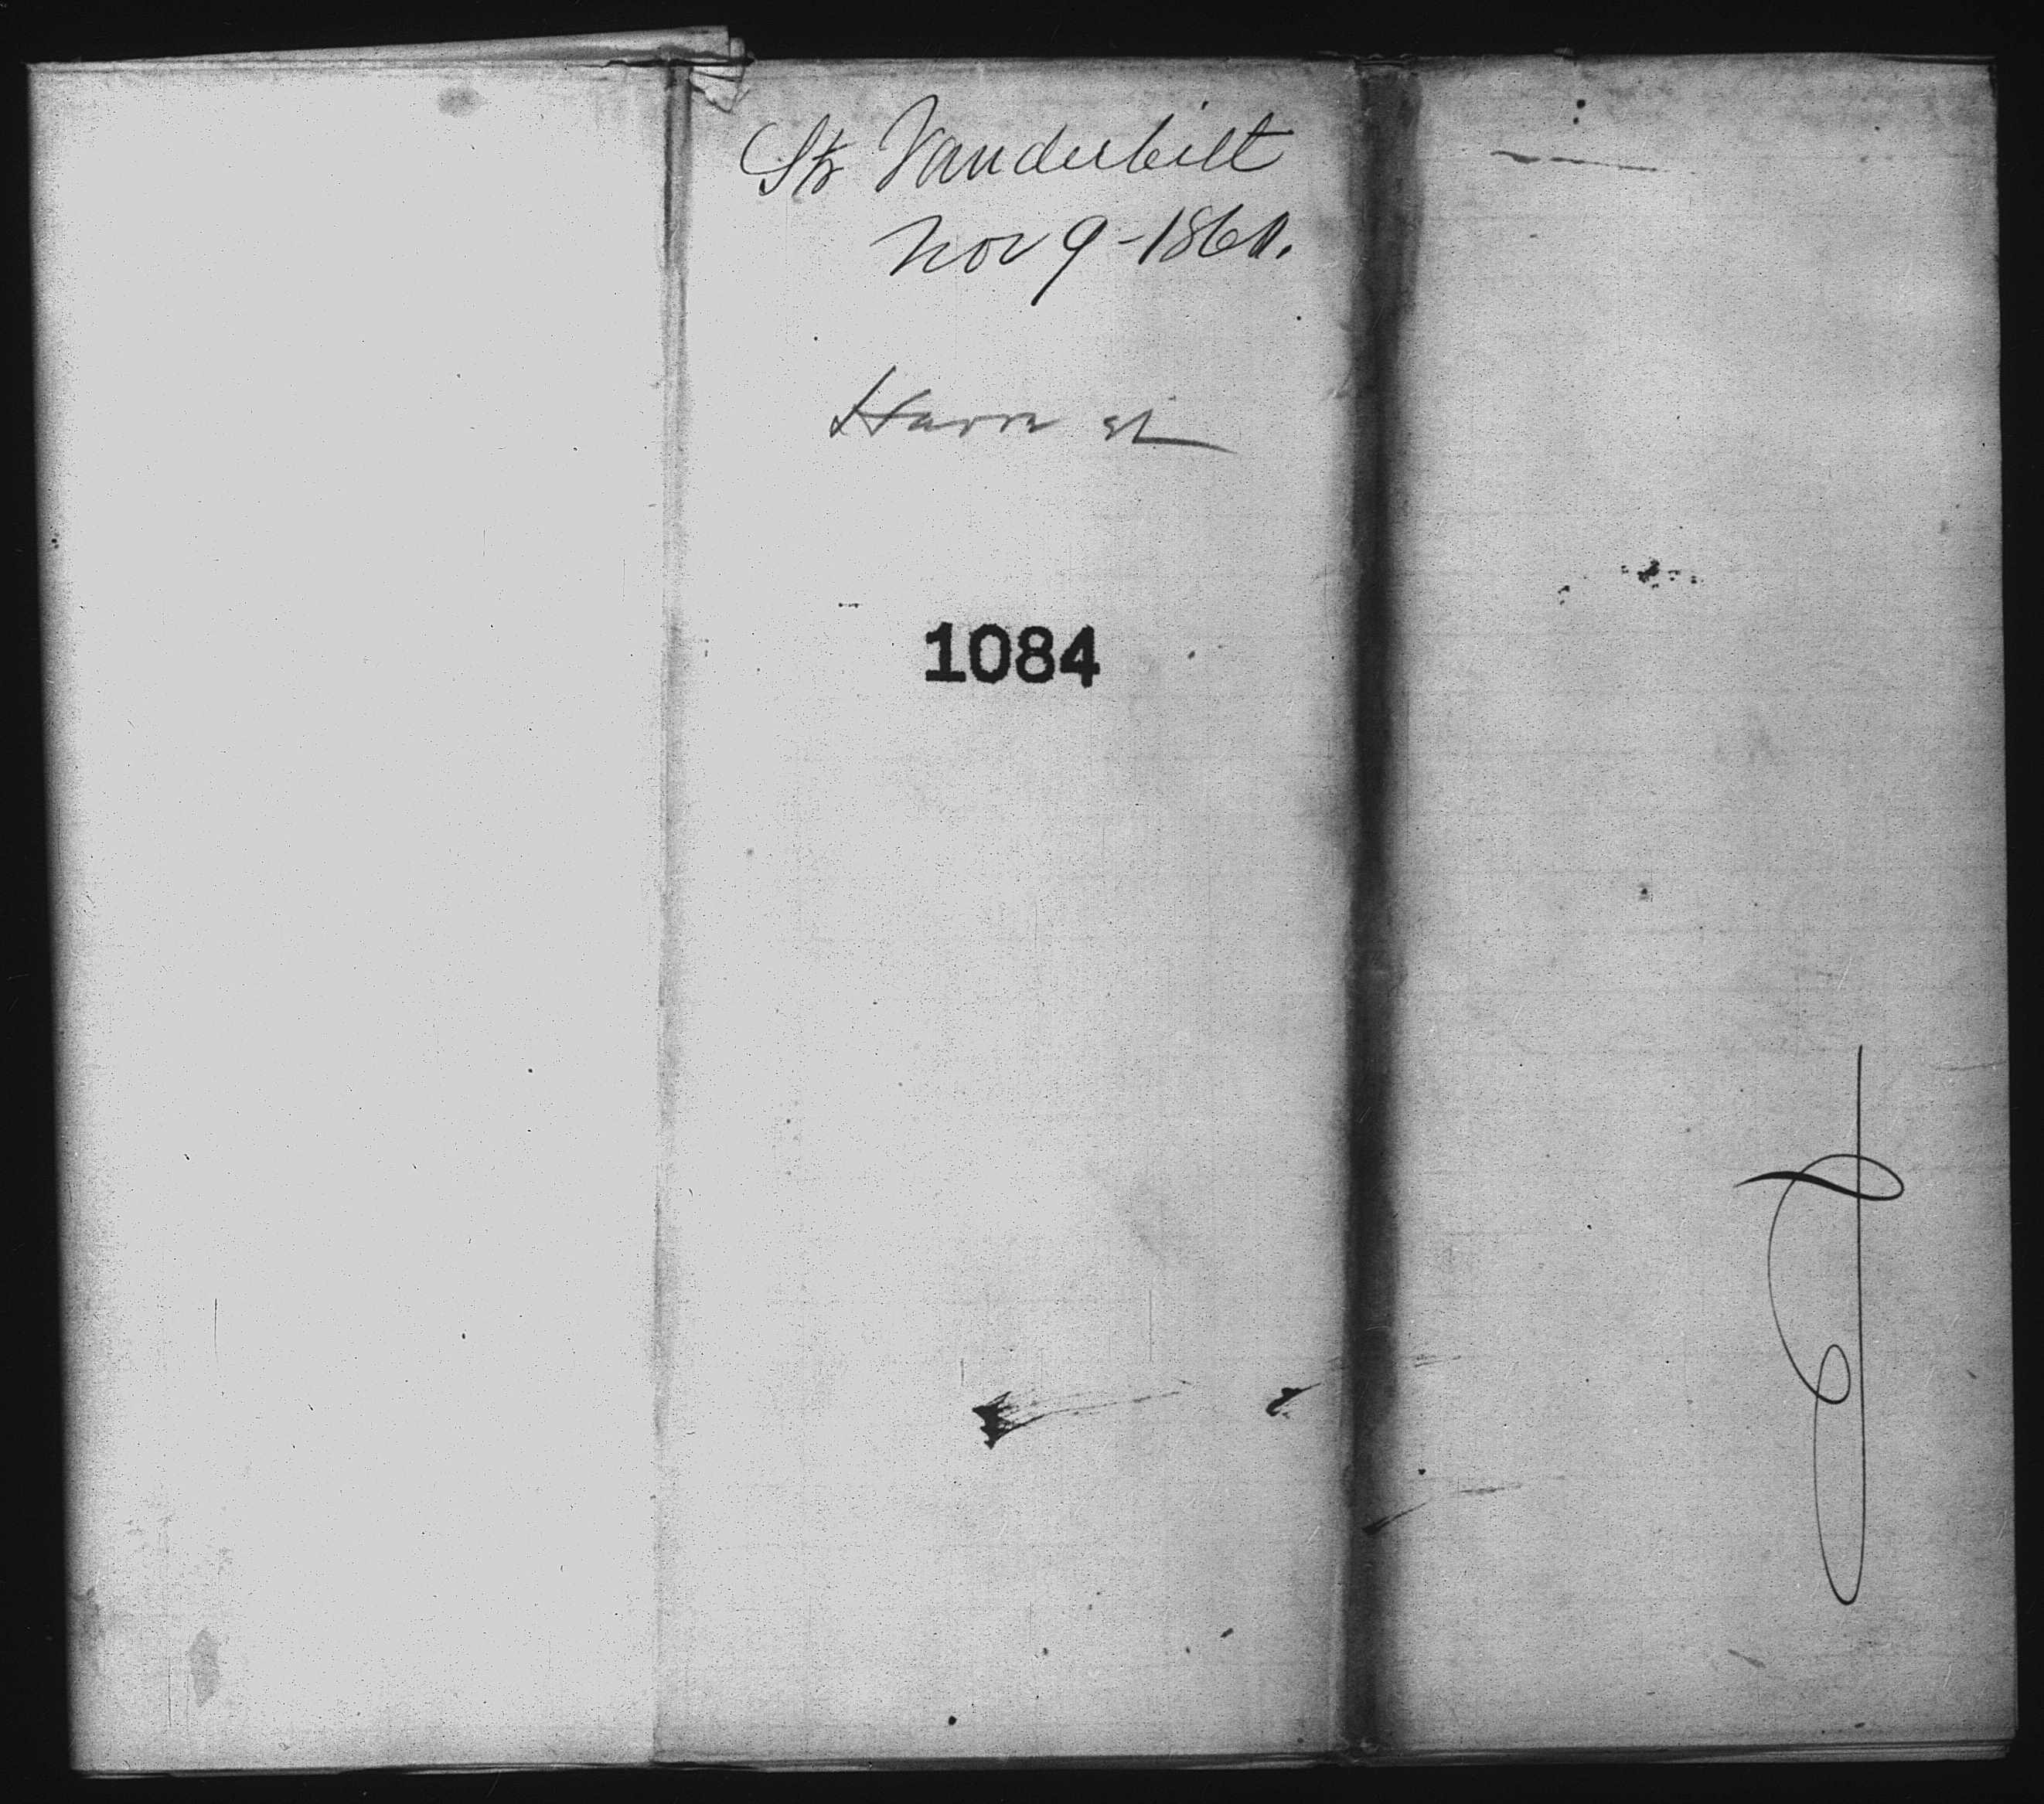 Str Vanderbilt
Nov 9-1860.
Havre
1084